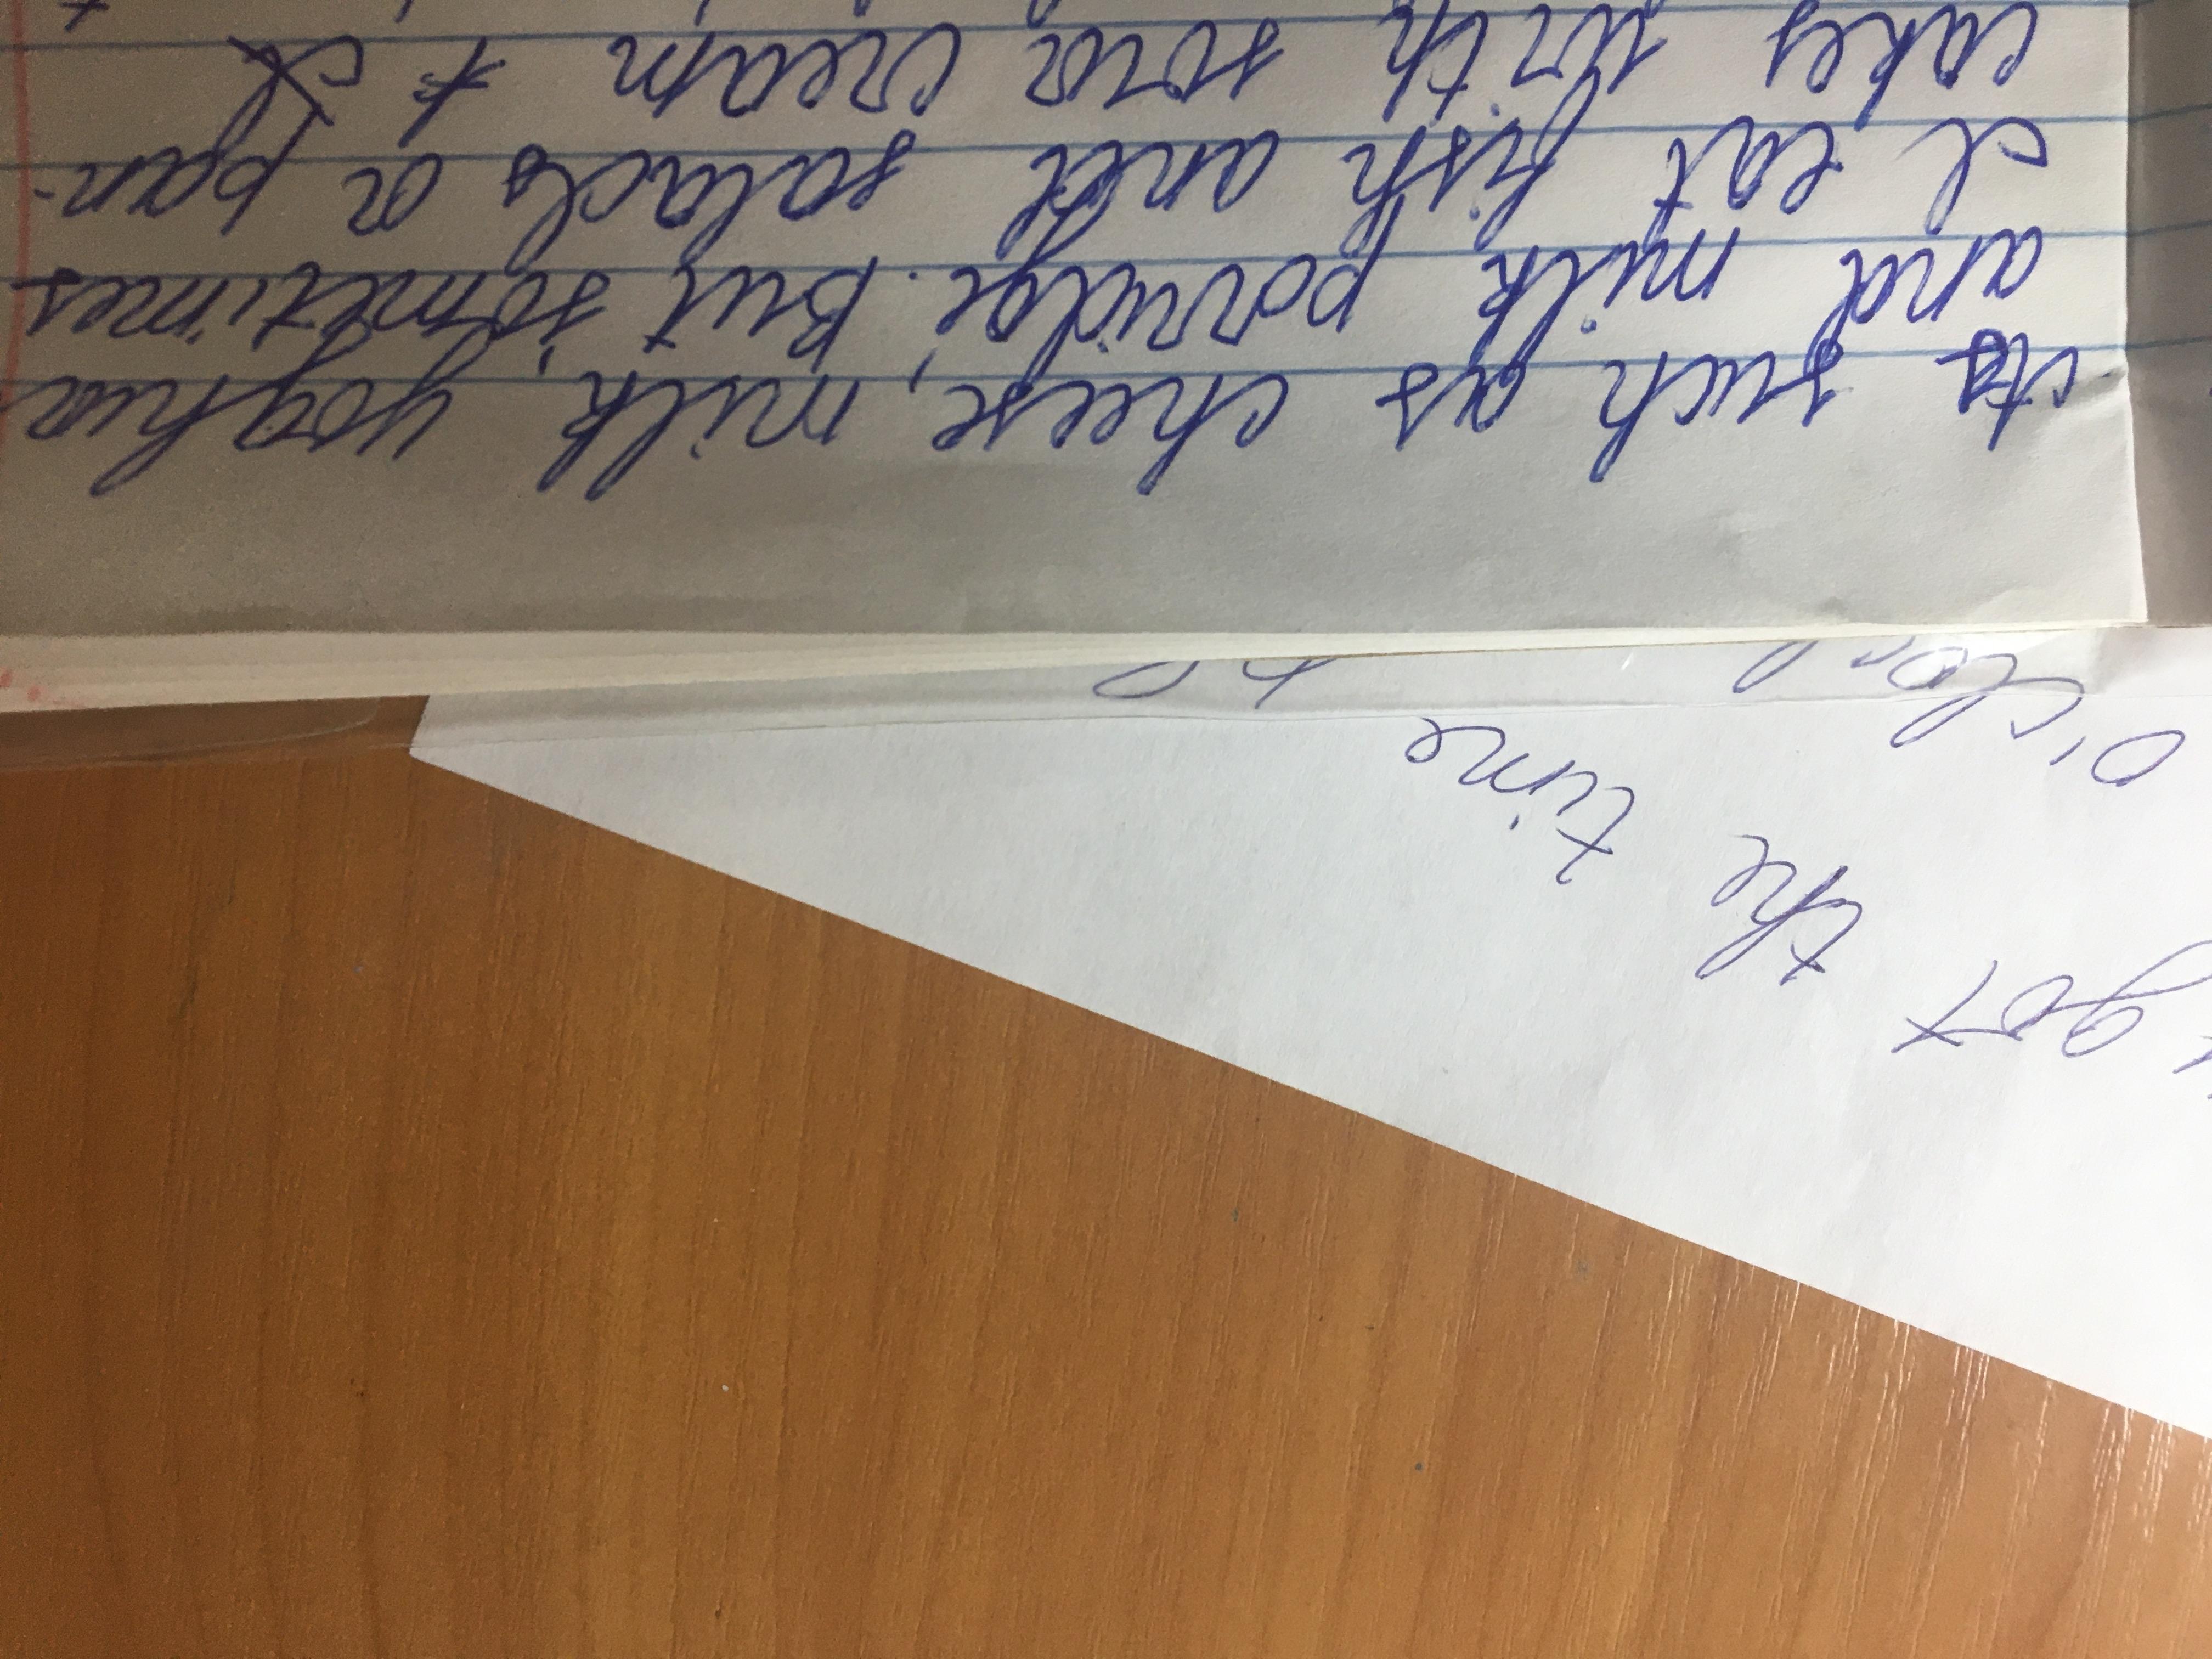 cts such as cheese, milk, yoghur
and milk porridge. But sometimes
I eat fish and salads or pan-
cakes with sour cream
got the time
o'clock